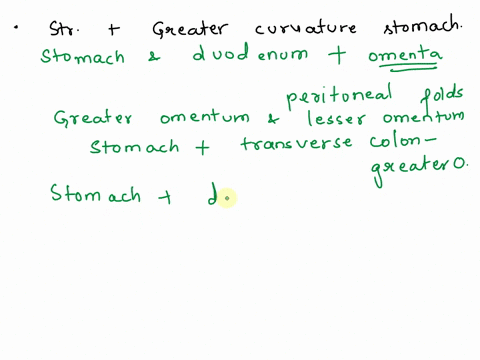 • Str. + Greater curvature stomach.
Stomach & duodenum + omenta
peritoneal folds
Greater omentum & lesser omentum
Stomach + transverse colon-
greater O.
Stomach + d